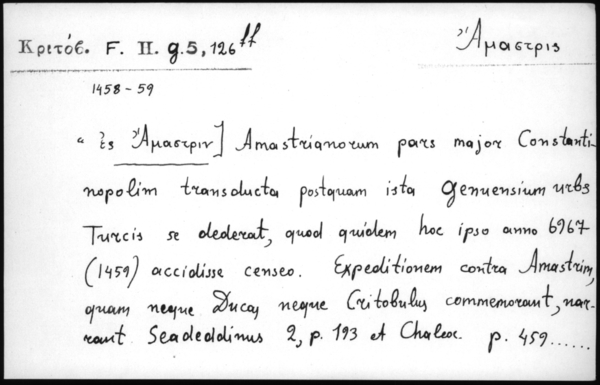 Κριτόβ. F. II. g. 5, 126 ff
Ἄμαστρις
1458 - 59
“ ἐς Ἄμαστριν] Amastrianorum pars major Constanti-
nopolim transducta postquam ista Genuensium urbs
Turcis se dederat, quod quidem hoc ipso anno 6967
(1459) accidisse censeo. Expeditionem contra Amastrim,
quam neque Ducas neque Critobulus commemorant, nar-
rant Seadeddinus 2, p. 193 et Chalcoc. p. 459......